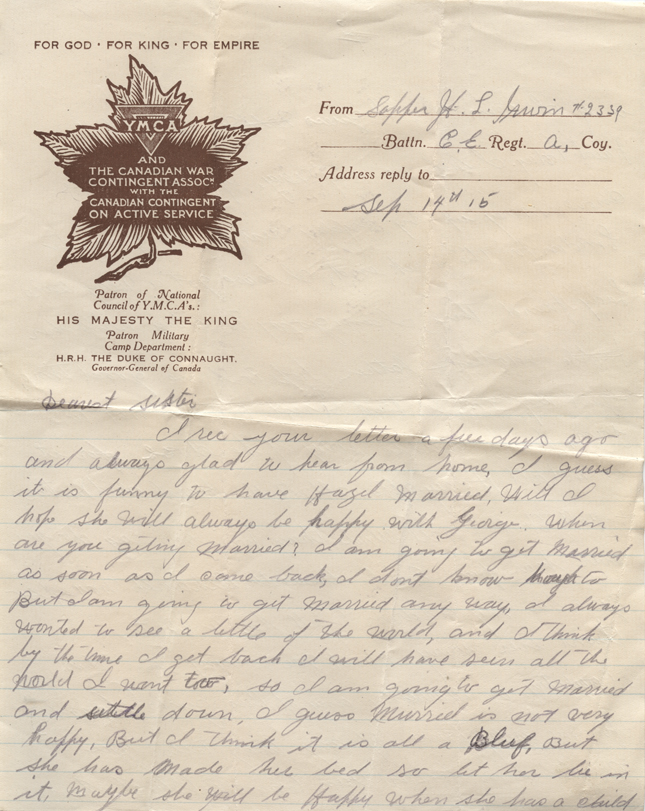 FOR GOD · FOR KING · FOR EMPIRE
YMCA
AND
THE CANADIAN WAR
CONTINGENT ASSOCN
WITH THE
CANADIAN CONTINGENT
ON ACTIVE SERVICE
Patron of National
Council of Y.M.C.A's.:
HIS MAJESTY THE KING
Patron Military
Camp Department:
H.R.H. THE DUKE OF CONNAUGHT.
Governor-General of Canada
From Sapper H. L. Irwin #2339
Battn. C.E. Regt. A, Coy.
Address reply to
Sep 14th 15
Dearest sister
I rec your letter a few days ago
and always glad to hear from home, I guess
it is funny to have Hazel Married, Will I
hop she will always be happy with George. When
are you geting Married? I am going to get Married
as soon as I come back, I dont know to
But I am going to get Married any way, I always
wonted to see a little of the world, and I think
by the time I get back I will have seen all the
world I want too, so I am going to get Married
and suttle down, I guess Murriel is not very
happy, But I think it is all a Bluf, But
she has Made her bed so let her lie in
it, Maybe she will be Happy when she has a child